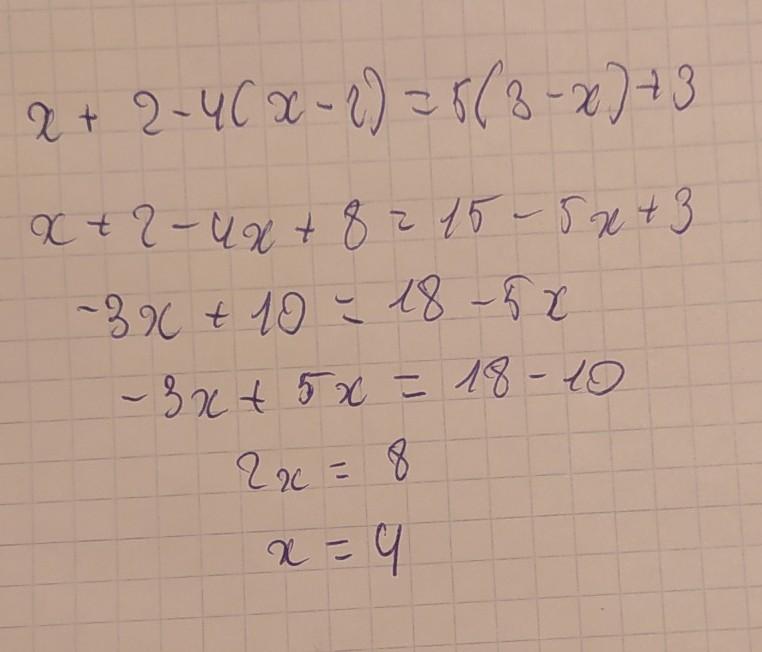 x + 2 - 4(x - 2) = 5(3 - x) + 3
x + 2 - 4x + 8 = 15 - 5x + 3
-3x + 10 = 18 - 5x
-3x + 5x = 18 - 10
2x = 8
x = 4